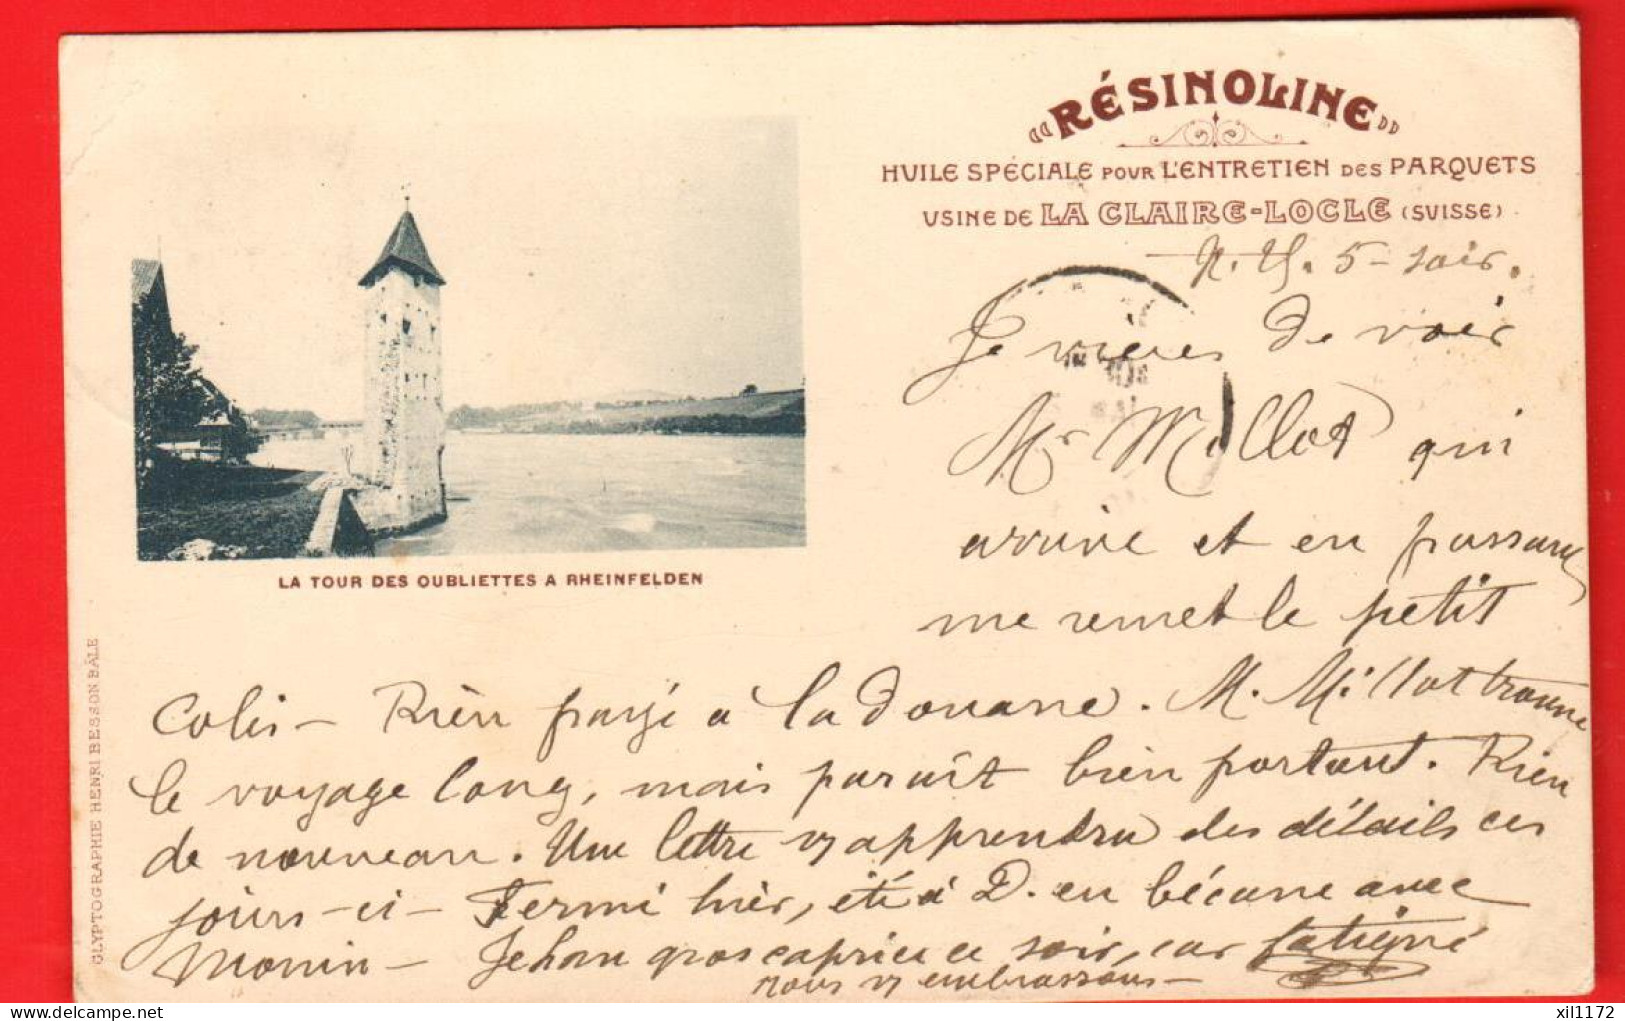 « RÉSINOLINE »
HUILE SPÉCIALE POUR L'ENTRETIEN DES PARQUETS
USINE DE LA CLAIRE-LOCLE (SUISSE)
5 - soir.
Je viens de voir
Mr Millot qui
arrive et en passant
me remet le petit
LA TOUR DES OUBLIETTES A RHEINFELDEN
colis - Rien payé à la douane. M. Millot trouve
le voyage long, mais paraît bien portant. Rien
de nouveau. Une lettre vs apprendra des détails ces
jours-ci - Fermé hier, été à D. en bécane avec
Monin - Jehan gros caprice ce soir, car fatigué
nous vs embrassons -
GLYPTOGRAPHIE HENRI BESSON BÂLE
xil1172